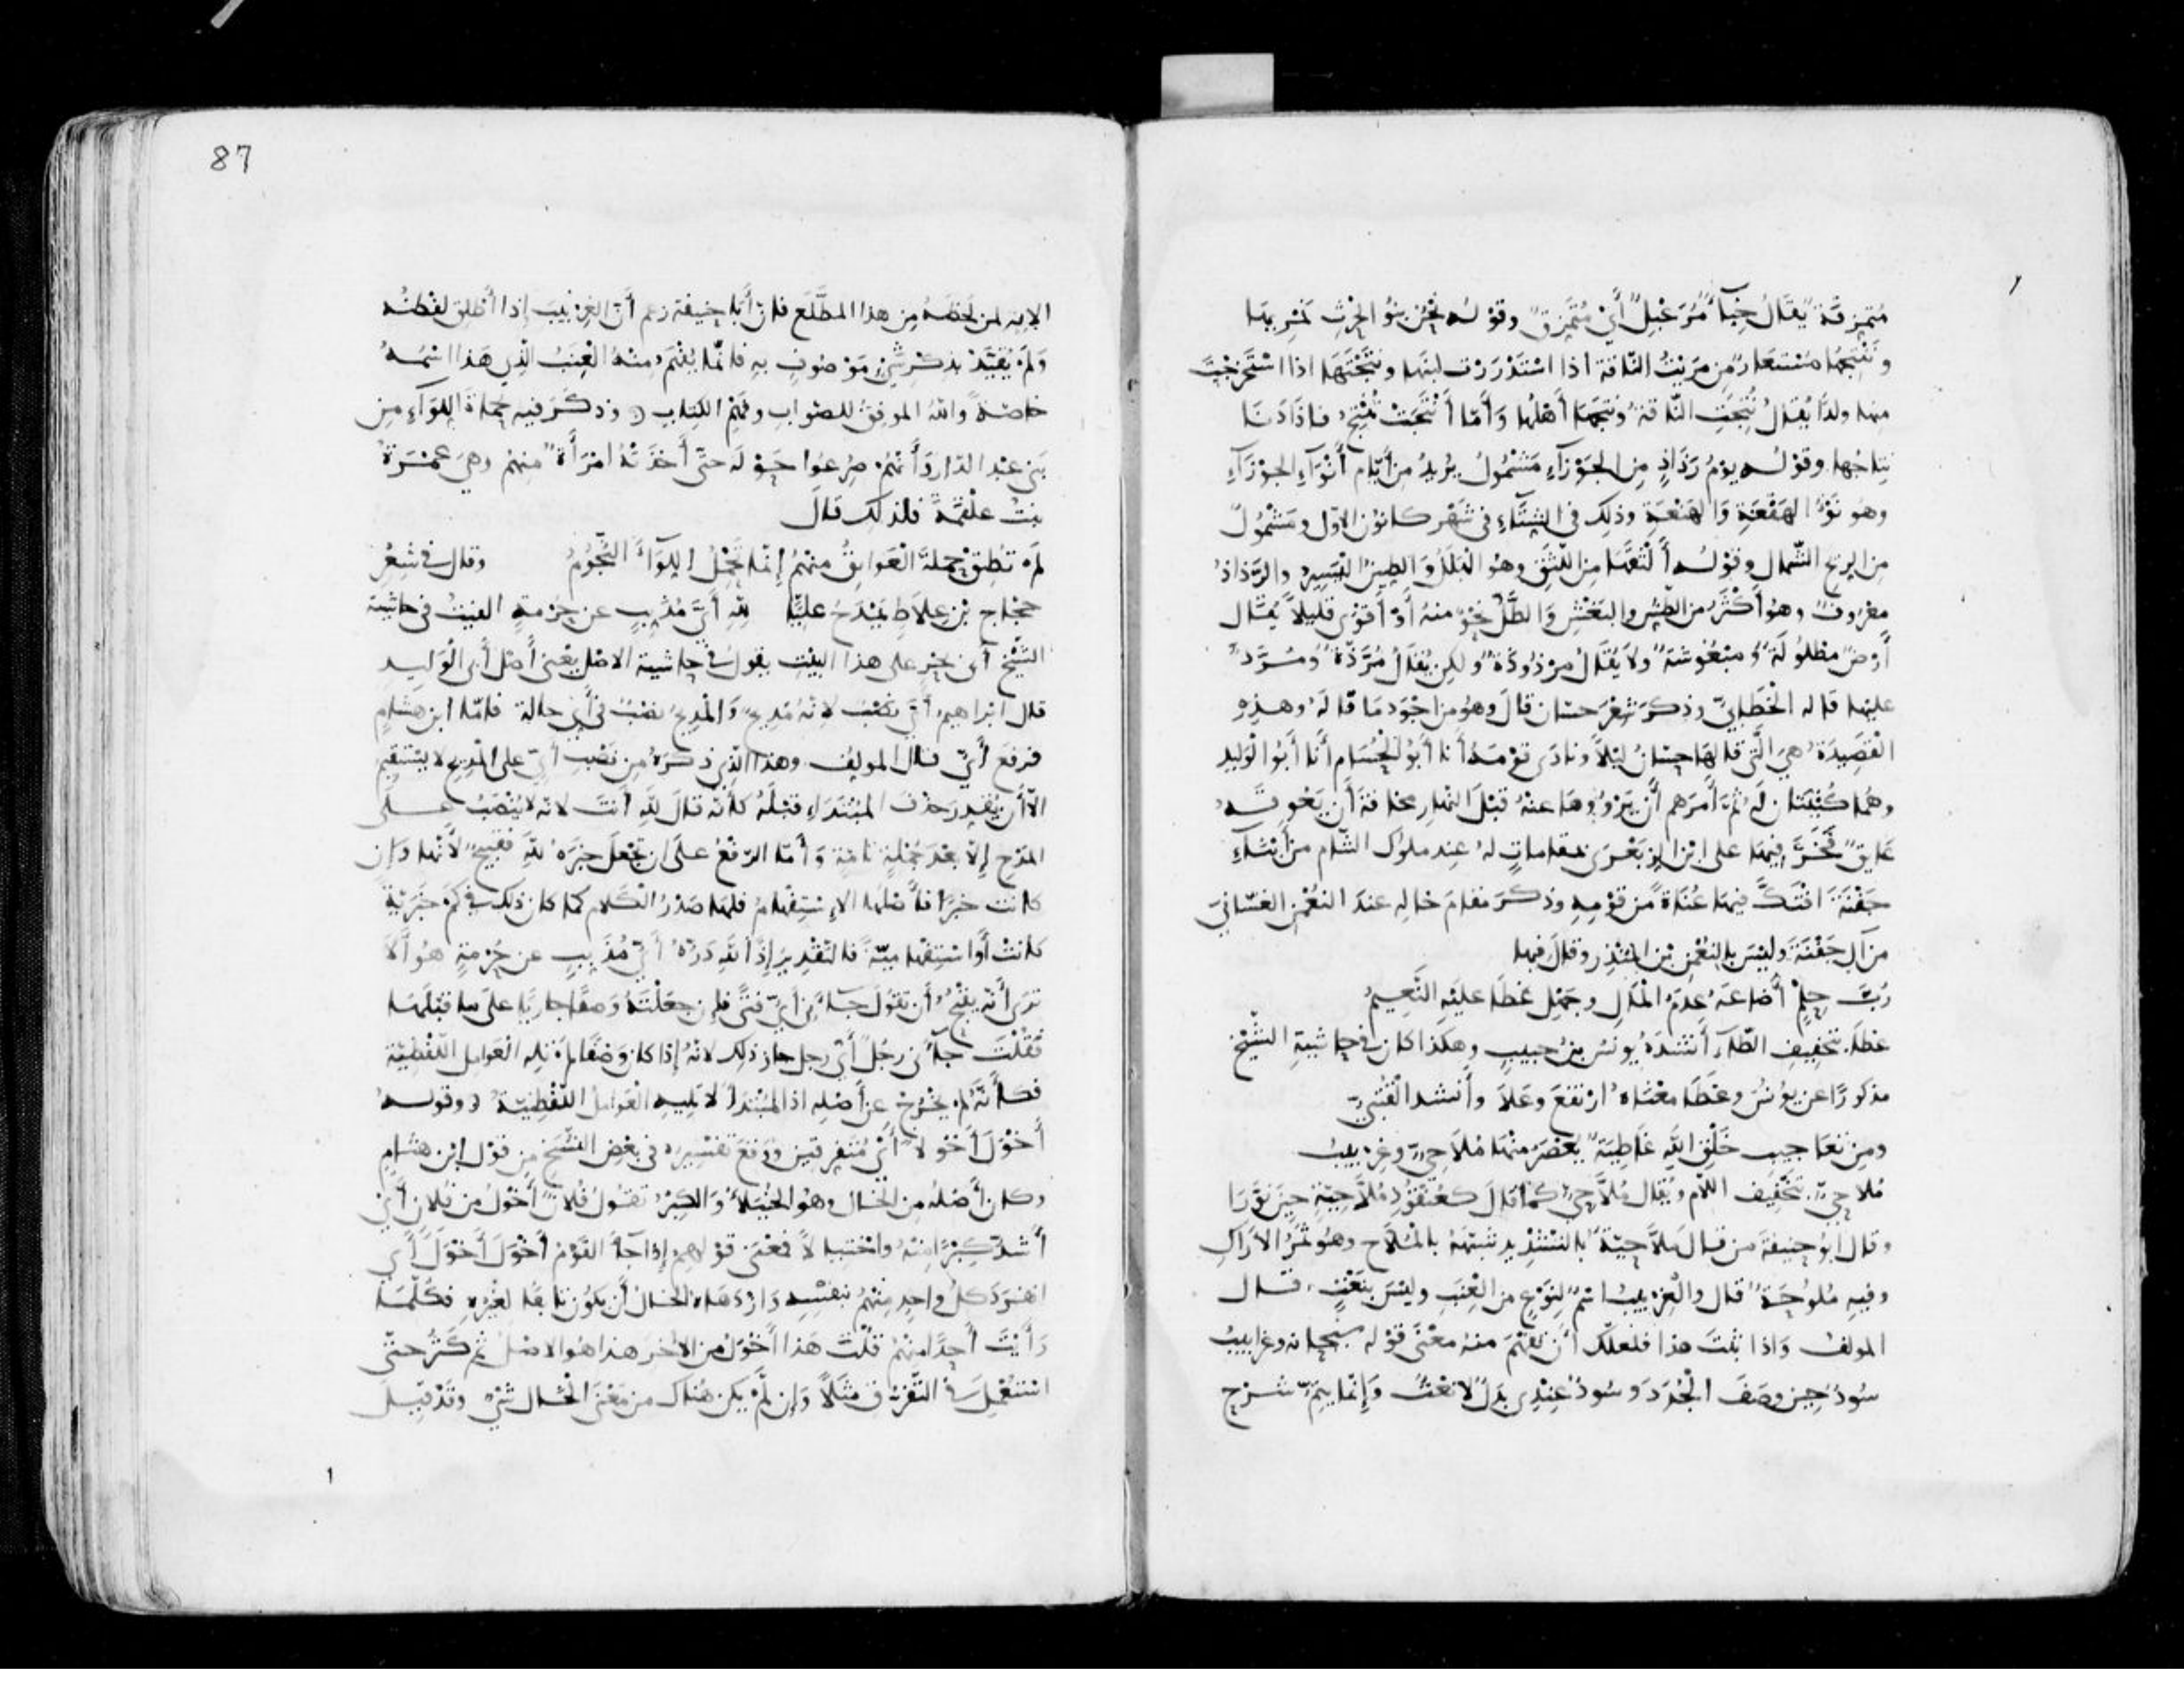 متمزقة يقال خباء مُرَعْبِلٌ أَيْ مُتَمَزِقٌ وقوله نَحْنُ بنو الحرْثِ نَمْرِيهَا
ونَنْتِجُها مُسْتَعَارٌ مِن مَرَيْتُ النَّاقَة اذا اسْتَدْرَرْتَ لبَنَها ونَتَجْتَها اذا اسْتَخْرَجْتَ
منها ولدًا يُقَالُ نُتِجَتِ النَّاقةُ ونَتَجَهَا أَهْلُها وَأَمّا أَنْتَجَتْ تُنْتِجُ فاذَا دَنَا
نِتاجُها وقوْله يوْمُ رَذَاذٍ مِن الجَوْزَآءِ مَشْمُولُ يُرِيدُ من أَيَّام أَنْوَآءِ الجوْزَآءِ
وهو نَوْءُ الهَقْعَةِ وَالهَنْعَةِ وذلك في الشِّتَآءِ في شَهْر كانوُن الاوّل ومَشْمُولٌ
من الريح الشَّمال وقوْلُه أَلْثَقَهَا مِن اللَّثَقِ وهو الْبَلَلُ وَالطِينُ اليَسِيرُ والرَّذاذُ
معْرُوفٌ وهُو أَكْثَرُ من الطَّشِ والبَغْشِ وَالطَّلُّ نَحْوٌ منهُ أَوْ أَقوَى قليلاً يُقَال
أَرْضٌ مَطْلُولَةٌ ومَبْغُوشَةٌ ولاَ يُقَالُ مَرْذُوذَةٌ ولكِن يُقَالُ مُرَذَّةٌ ومُرَذٌّ
عليها قاله الْخَطَّابيّ وذكَرَ شِعْرَ حسّان قالَ وهُو من اجْوَدِ مَا قالَهُ وهذِهِ
الْقَصِيدَةُ هيَ الَّتي قالهَا حسّانُ ليْلاً ونادَى قوْمَهُ أَنا أَبُو الْحُسَام أَنَا أَبُو الْوَلِيد
وهُما كُنْيَتان لَه ثُمّ أَمَرَهم أَنْ يَرْوُوها عنهُ قبْلَ النهارِ مخافةَ أَن يَعُوقَهُ
عايقٌ فَخَرَ فيهَا على ابْن الزِبَعْرَى بمقاماتٍ لهُ عِند ملوُك الشّام من أَبْنآءِ
جَفْنَةَ افْتَكَّ فيهَا عُنَاةً من قوْمِهِ وذكَرَ مقامَ خالِهِ عندَ النعْمن الغسّانيّ
من آلِ جَفْنَةَ وليْسَ بالنُعْمن بْن المُنْذِر وقالَ فيها
رُبَّ حِلْمٍ أَضَاعَهُ عدَمُ الْمَالِ وجَهْلٍ غَطَا عليْهِ النَّعِيمُ
غطَا بتخْفِيفِ الطّآءِ أَنْشَدَهُ يوُنسُ بنُ حبيبٍ وهكذا كان في حاشيةِ الشَّيْخِ
مذكورًا عن يوُنُسَ وغَطَا معْنَاهُ ارْتفَعَ وعَلاَ وأَنشد الْقُتَبيّ
ومِن تَعَاجيبِ خَلْقِ اللهِ غَاطِيَةٌ يُعْصَرُ مِنْهَا مُلاَحِيٌّ وغِرْبِيبُ
مُلاحِيٌّ بتَخْفِيف اللاّم ويُقال مُلاَّحِيٌّ كَمَا قالَ كعُنْقُودِ مُلاَّحِيّةٍ حِينَ نَوَّرَا
وقال ابُو حنِيفَة من قال مُلاَّحِيّةٌ بالتَشْدِيدِ شبّهَهُ بالْمُلاّح وهُو ثَمَرُ الأَرَاكِ
وفيهِ مُلوُحَةٌ قال والْغِرْبِيبُ اسْمٌ لنَوْعٍ من الْعِنَبِ وليْسَ بنَعْتٍ، قال
المولف وَاذا ثبَتَ هذا فلعلّكَ أَنْ تفْهَمَ منهُ معْنَى قوْله سبحانه وغرابيبُ
سُودٌ حِينَ وصَفَ الْجُدَدَ وسُودٌ عِنْدِى بدَلٌ لا نَعْتٌ وَإِنّما يتِمُّ شرْح
87
الايةِ لمن لَحَظَهُ مِن هذا المطَّلَع فان أَبا حنيفةَ زعم أَنّ الغِرْبيبَ إذا أُطْلِق لفْظُه
وَلَمْ يُقَيَّدْ بذكْرِ شَيْءٍ موْصُوفٍ بهِ فانّما يُفْهَم منهُ الْعِنَبُ الّذِي هَذا اسْمُهُ
خاصّةً واللهُ الموفِقُ للصّوابِ وفَهْمِ الكِتابِ وذكَرَ فيه حُماةَ اللِوَآءِ مِن
بَني عبْدِ الدّار وَأَنّهُم صُرِعُوا حَوْلَه حتّى أَخذَتْهُ امْرَأَةٌ منهُم وهيَ عَمْرَةُ
بنتُ علْقَمةَ فلذلكَ قالَ
لَمْ تُطِقْ حمْلَهُ الْعَوَاتِقُ مِنْهُم إِنّما يَحْمِلُ اللِوَآءَ النُّجُومُ وقال في شِعْر
حجّاج بْن عِلاَطٍ يَمْدَحُ عليًّا للهِ أَيُّ مُذَبِّبٍ عن حُرْمةٍ البيْتَ في حاشية
الشَّيْخ أَبي بحرٍ على هذا البيْتِ يقولُ في حاشية الاصْل يعْني أَصْل أَبي الْوَليد
قال ابْراهيمُ أَيّ نصْبٌ لانّهُ مَدِيحٌ وَالْمديحُ نصْبٌ في أَيّ حالة فامّا ابن هشَامٍ
فرفَعَ أَيّ قال المولف وهذا الذِي ذكرَهُ مِن نَصْبِ أَيّ على المدِيحِ لا يسْتَقِيمُ
الاّ أَن يُقَدِرَ حذْفَ المبْتَدَاءِ قبْلَهُ كأنّهُ قالَ للهِ أَنتَ لانّه لا يُنْصَبُ علَى
المَدْحِ إلاّ بعْدَ جُمْلةٍ تامّةٍ وَأَمّا الرّفْعُ علَى ان تجْعلَ خبَرَهُ للهِ فقبيحٌ لأَنّها وَإن
كانت خبرًا فأصْلُها الاِسْتِفْهامُ فلها صَدْرُ الكَلام كما كان ذلك في كَمْ خبَرِيّةً
كانتْ أَو اسْتِفْهاميّةً فالتّقْدِيرُ إذًا للهِ دَرُّهُ أَيُّ مُذَبِبٍ عن حُرْمةٍ هُو أَلاَ
تَرَى أَنّه يقْبُحُ أَن تقُولَ جآءَني أَيُّ فتًى فإن جعَلْتَهُ وَصفًا جاريًا علَى ما قبْلَها
فَقُلْتَ جآءَني رجُلٌ أَيُّ رجلٍ جاز ذلِك لانّهُ إذا كان وَصفًا لمْ تلِهِ الْعوَامل اللّفْظيّة
فكأَنّهُ لمْ يخْرُج عن أَصْلِهِ اذ المبْتدَأُ لا تَليهِ العَوامل اللّفْظيّةُ وقوْلهُ
أَخْوَلَ أَخْولاَ أَيْ مُتَفرِقينَ ووَقَعَ تفْسِيرُهُ في بعْضِ النُّسَخِ من قوْل ابْن هشامٍ
وكان أَصْلُهُ مِن الخَال وهُو الخُيَلاَءُ وَالكِبْرُ تقُولُ فُلانٌ أَخْوَلُ مِن فُلانٍ أَيْ
أَشدُّ كِبْرًا منهُ واخْتِيالاً فمَعْنَى قوْلهم إذا جآءَ القَوْمُ أَخْوَلَ أَخْوَلَ أَي
انفرَدَ كلُّ واحِدٍ مِنْهُم بنفسِهِ وَازْدَهاهُ الخال أَنْ يكوُن تابعًا لغيْرهِ فكُلّمَا
رَأَيْتَ أَحدًا مِنْهُم قُلْتَ هَذا أَخْوَلُ من الآخَر هذا هُو الاصْلُ ثمّ كَثُر حتّى
اسْتُعْمِلَ في التّفرُّقِ مثَلاً وَإن لَمْ يكن هُناك من مَعْنَى الخال شَيْءٌ وقَدْ قيل